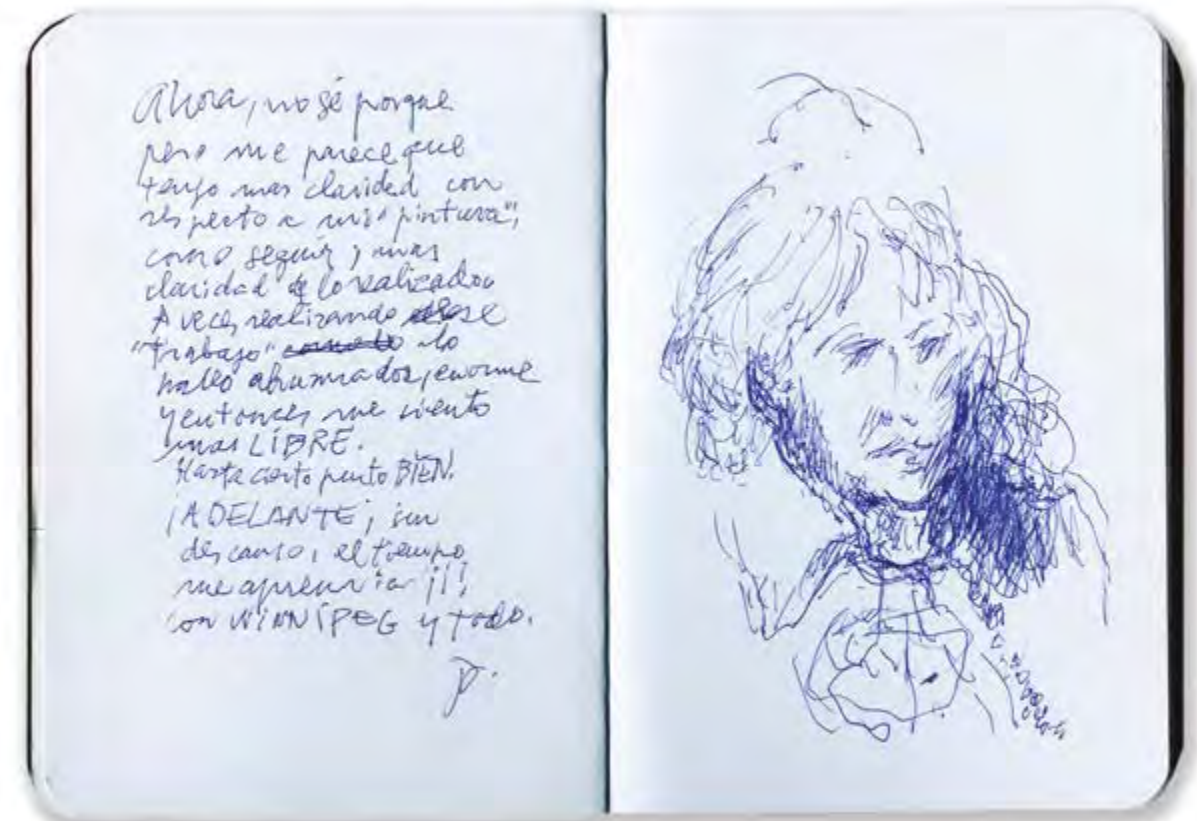 Ahora, no sé porque
pero me parece que
tengo mas claridad con
respecto a mi "pintura",
como seguir, mas
claridad de lo realizado.
A veces realizando ese
"trabajo" lo
hallo abrumador, enorme
y entonces me siento
mas LIBRE.
Hasta cierto punto BIEN.
¡ADELANTE; sin
descanso, el tiempo
me apremia ¡¡¡
con WINNIPEG y todo.